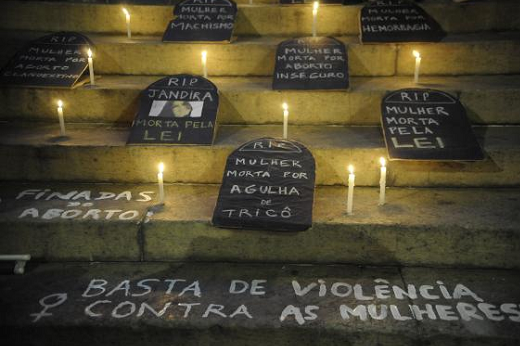 RIP
MULHER
MORTA POR
ABORTO
CLANDESTINO
MULHER
MORTA POR
MACHISMO
MULHER
MORTA POR
ABORTO
INSEGURO
MULHER
MORTA POR
HEMORRAGIA
RIP
JANDIRA
MORTA PELA
LEI
RIP
MULHER
MORTA POR
AGULHA
DE
TRICÔ
RIP
MULHER
MORTA
PELA
LEI
FINADAS
DO
ABORTO
BASTA DE VIOLÊNCIA
CONTRA AS MULHERES